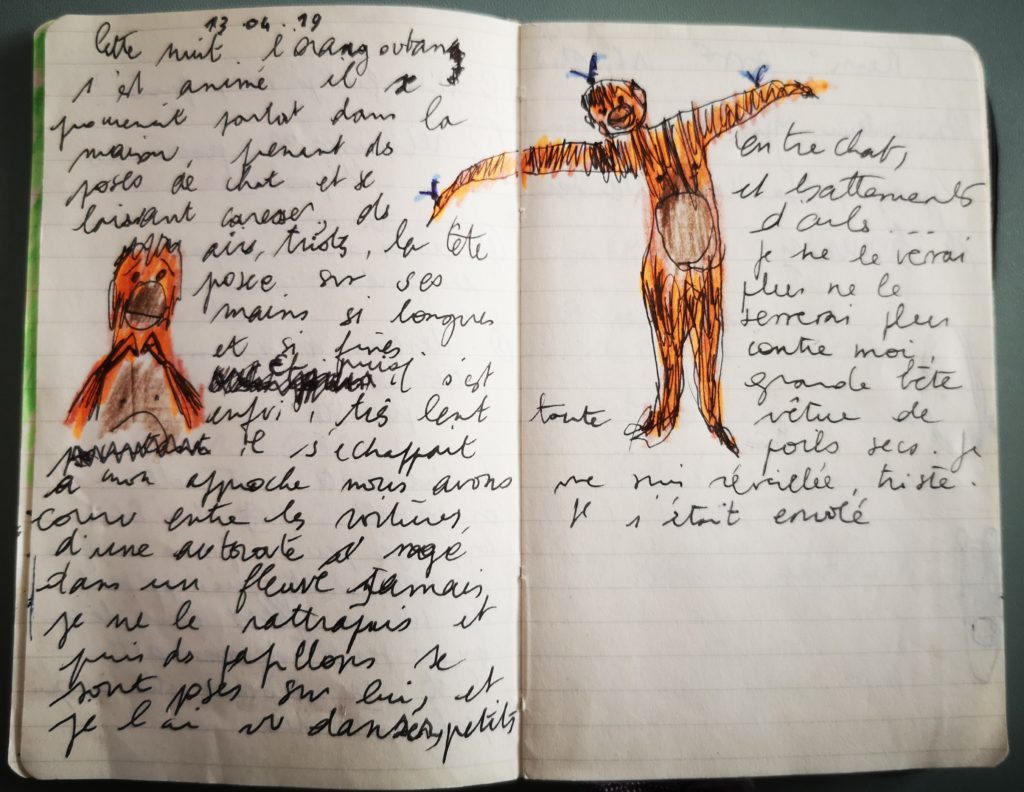 13.04.19
Cette nuit l'orang outang
s'est animé il se
promenait partout dans la
maison, prenant des
poses de chat et se
laissant caresser, des
airs tristes, la tête
posée sur ses
mains si longues
et si fines.
Et puis il s'est
enfui, très lent
il s'échappait
à mon approche nous avons
couru entre les voitures,
d'une autoroute nagé
dans un fleuve Jamais,
je ne le rattrapais et
puis des papillons se
sont posés sur lui, et
je l'ai vu danser, petits
entrechats,
et battements
d'ails...
je ne le verrai
plus ne le
serrerai plus
contre moi,
grande bête
toute vêtue de
poils secs. Je
me suis réveillée, triste.
s'était envolé